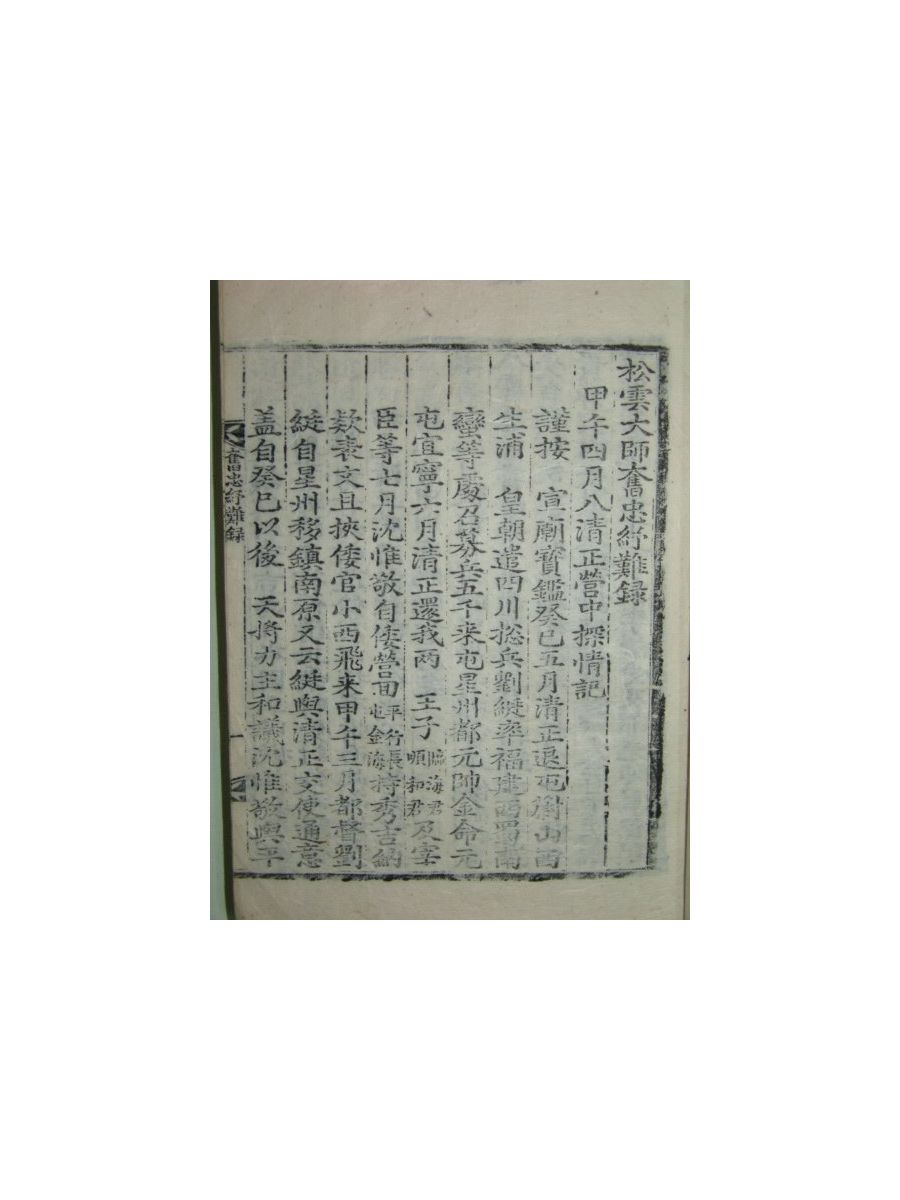 松雲大師奮忠紓難録
甲午四月入清正營中探情記
謹按 宣廟寶鑑癸巳五月清正退屯蔚山西
生浦 皇朝遣四川摠兵劉綎率福建西蜀南
蠻等處召募兵五千来屯星州都元帥金命元
屯宜寧六月清正還我兩 王子臨海君順和君及宰
臣等七月沈惟敬自倭營回平行長屯金海持秀吉納
欵表文且挾倭官小西飛来甲午三月都督劉
綎自星州移鎮南原又云綎與清正交使通意
盖自癸巳以後 天將力主和議沈惟敬與平
奮忠紓難録
一